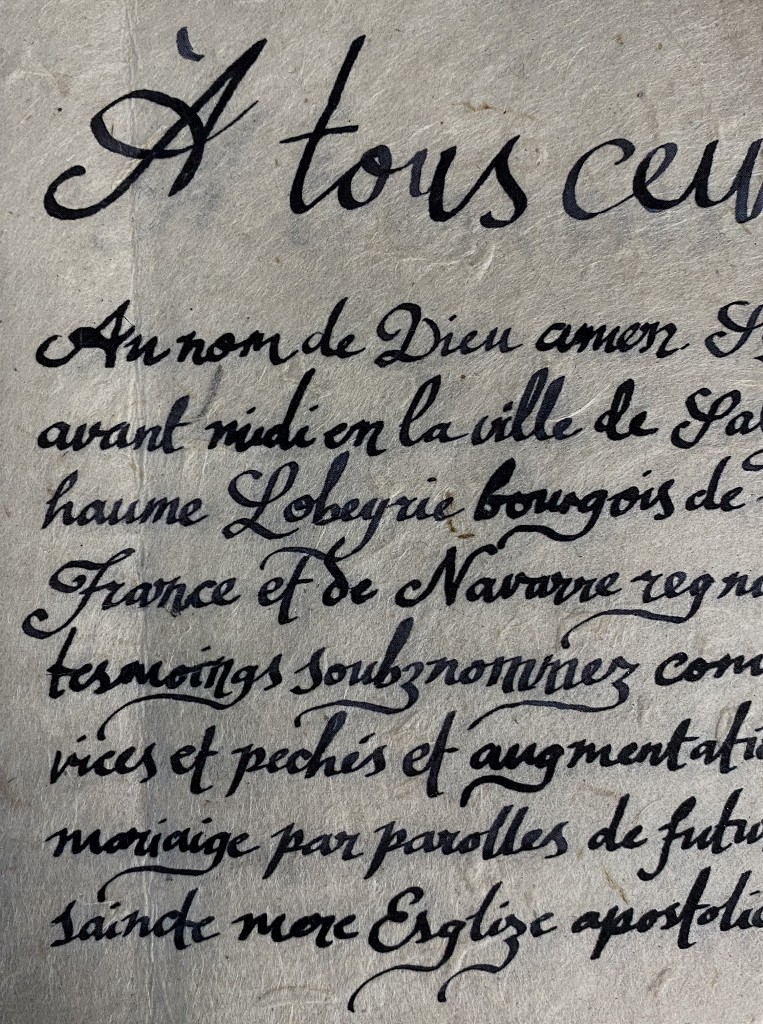 À tous ceu
Au nom de Dieu amen. S
avant midi en la ville de Sa
haume Lobeyrie bourgois de
France et de Navarre regn
tesmoings soubznommez com
vices et pechés et augmentati
mariaige par parolles de futu
saincte mere Esglize apostoli